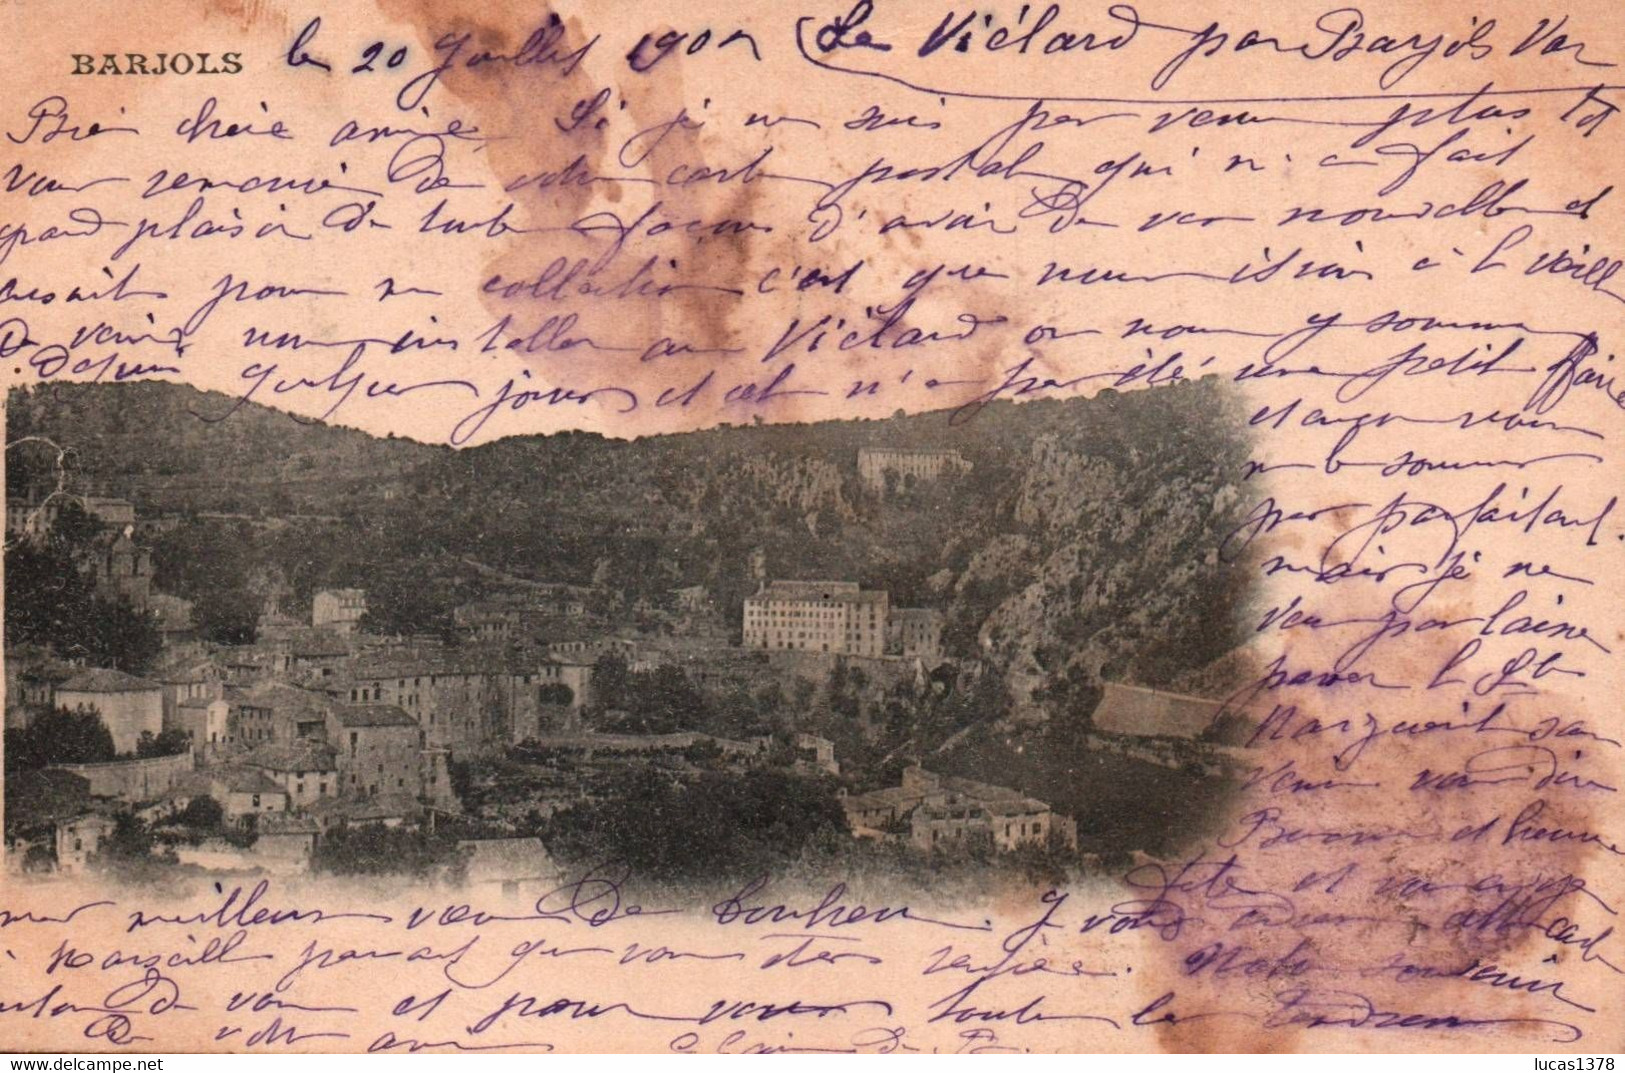 BARJOLS le 20 Juillet 190 Le Viélard par Barjols Var
chère amie Si je ne suis pas venu plus tôt
vous remercier de votre carte postale qui m'a fait
grand plaisir de toute façons d'avoir de vos nouvelles et
ensuite pour ma collection c'est que nous étions à la veille
de venir nous installer au Viélard où nous y sommes
depuis quelques jours et cela n'a pas été une petite affaire
et encore nous
ne le sommes
pas parfaitement
mais je ne
veux pas laisser
passer la Ste
Marguerite sans
venir vous dire
Bonne et heureuse
fête et vous envoyer
mes meilleurs vœux de bonheur. Je vous adresse cette carte
à Marseille pensant que vous êtes rentrée. Mille souvenirs
autour de vous et pour vous toute la tendresse
de votre amie
lucas1378